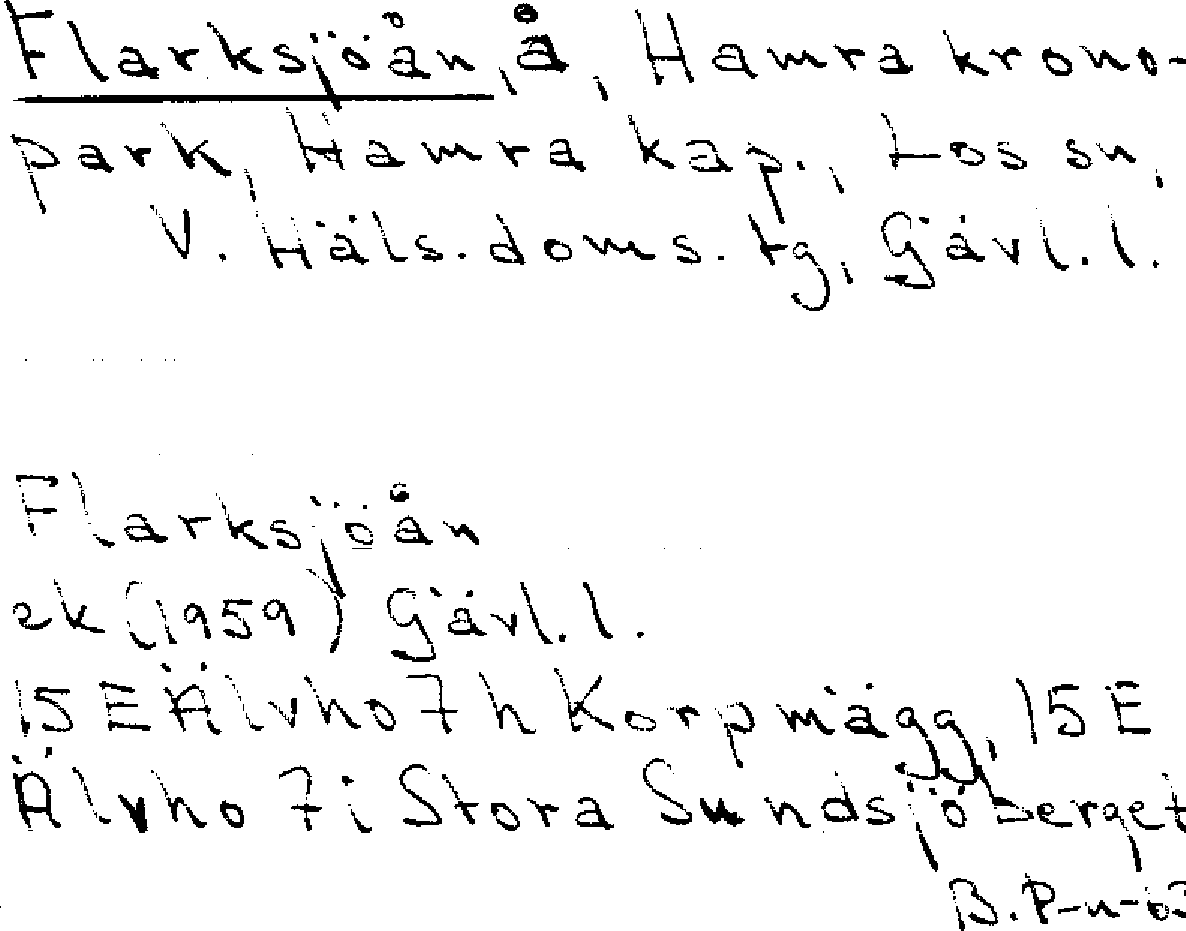 Flarksjöån, å, Hamra krono-
park, Hamra kap., Los sn,
V. Häls. doms. tg, Gävl. l.
Flarksjöån
ek (1959) Gävl. l.
15 E Älvho 7 h Korpmägg, 15 E
Älvho 7 i Stora Sundsjöberget
B. P-n-63